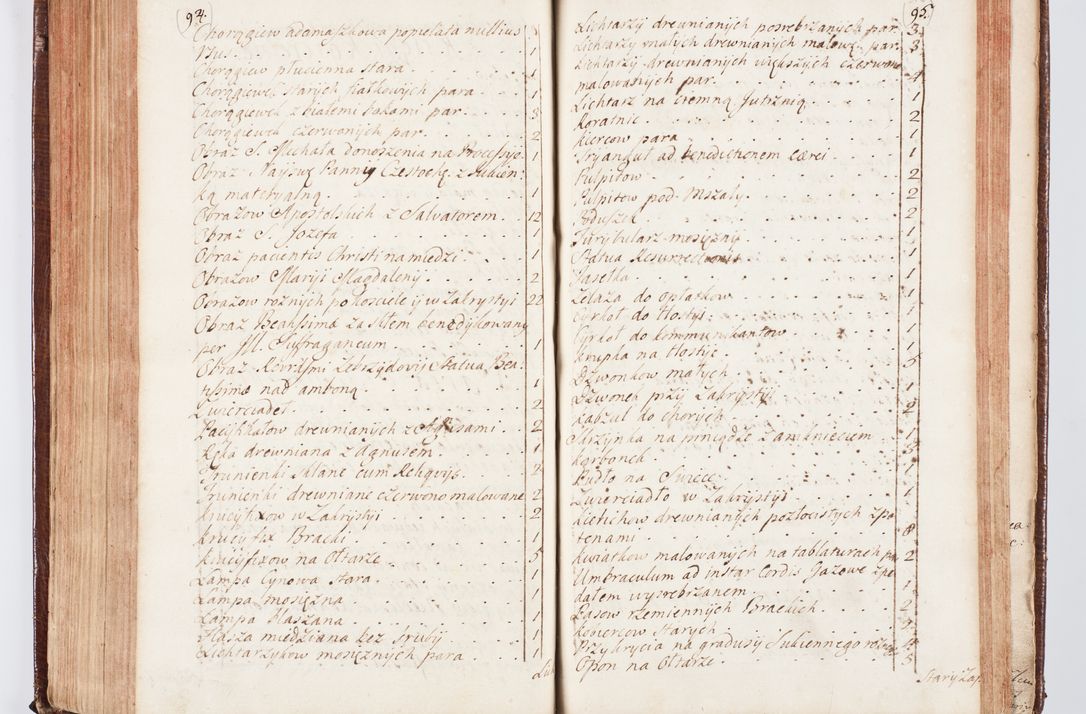 94.
Chorągiew adamaszkowa popielata nullius
Usus . 1
Chorągiew płucienna stara . 1
Chorągiewek starych fiałkowych para . 1
Chorągiewek z białemi hakami par . 3
Chorągiewek czerwonych par . 2
Obraz S. Michała do noszenia na Processyą . 1
Obraz Nayśwę Panny Częstochę z sukien:
ką materyalną . 1
Obrazow Apostolskich z Salvatorem . 12
Obraz S. Jozefa . 1
Obraz pacientis Christi na miedzi . 1
Obrazow Maryi Magdaleny . 2
Obrazow roznych po kosciele ij w Zakrystyi 22
Obraz Beatissimæ za szkłem benedykowany
per Ill. Suffraganeum . 1
Obraz Revdssmi Zebrzydovij Statua Bea-
tissimæ nad amboną . 1
Zwierciadeł . 2
Pacyfikałow drewnianych z Agnusami . 2
Ręka drewniana z Agnusem . 1
Trunienki sklane cum Reliqvijs . 2
Trunienki drewniane czerwono malowane 2
Krucyfixow w Zakrystyi . 2
Krucyfix Bracki . 1
Krucyfixow na Ołtarze . 5
Lampa Cynowa stara . 1
Lampa mosięzna . 1
Lampa blaszana . 1
Flasza miedziana bez śruby . 1
Lichtarzykow mosięznych para . 1
95.
Lichtarzy drewnianych posrebrzanych par. 3
Lichtarzy małych drewnianych malow. par. 3
Lichtarzy drewnianych większych czerwono
malowanych par . 4
Lichtarz na ciemną Jutrznią . 1
Koratnic . 2
Kiercow para . 1
Tryanguł ad benedictionem cærei . 1
Pulpitow . 2
Pulpitow pod Mszały . 2
Poduszek . 2
Turybularz mosięzny . 1
Statua Resurrectionis . 1
Jasełka . 1
Zelaza do opłatkow . 1
Cyrkoł do Hostyi . 1
Cyrkoł do kommunikantow . 1
Krupka na Hostye . 1
Dzwonkow małych . 5
Dzwonek przy Zakrystyi . 1
Kabzul do chorych . 2
Skrzynka na pniądze z amknieciem . 1
Karbonek . 3
Pudło na Swiece . 1
Zwierciadło w Zakrystyi . 1
Kielichow drewnianych pozłocistych z pa
tenami . 8
Kwiatkow malowanych na tablaturach par 2
Umbraculum ad instar Cordis Gazowe z pe
dałem wysrebrzanem . 1
Pasow rzemiennych Brackich . 2
Kobiercow Starych .
Przykrycia na gradusy Sukiennego
Opon na Ołtarze . 5